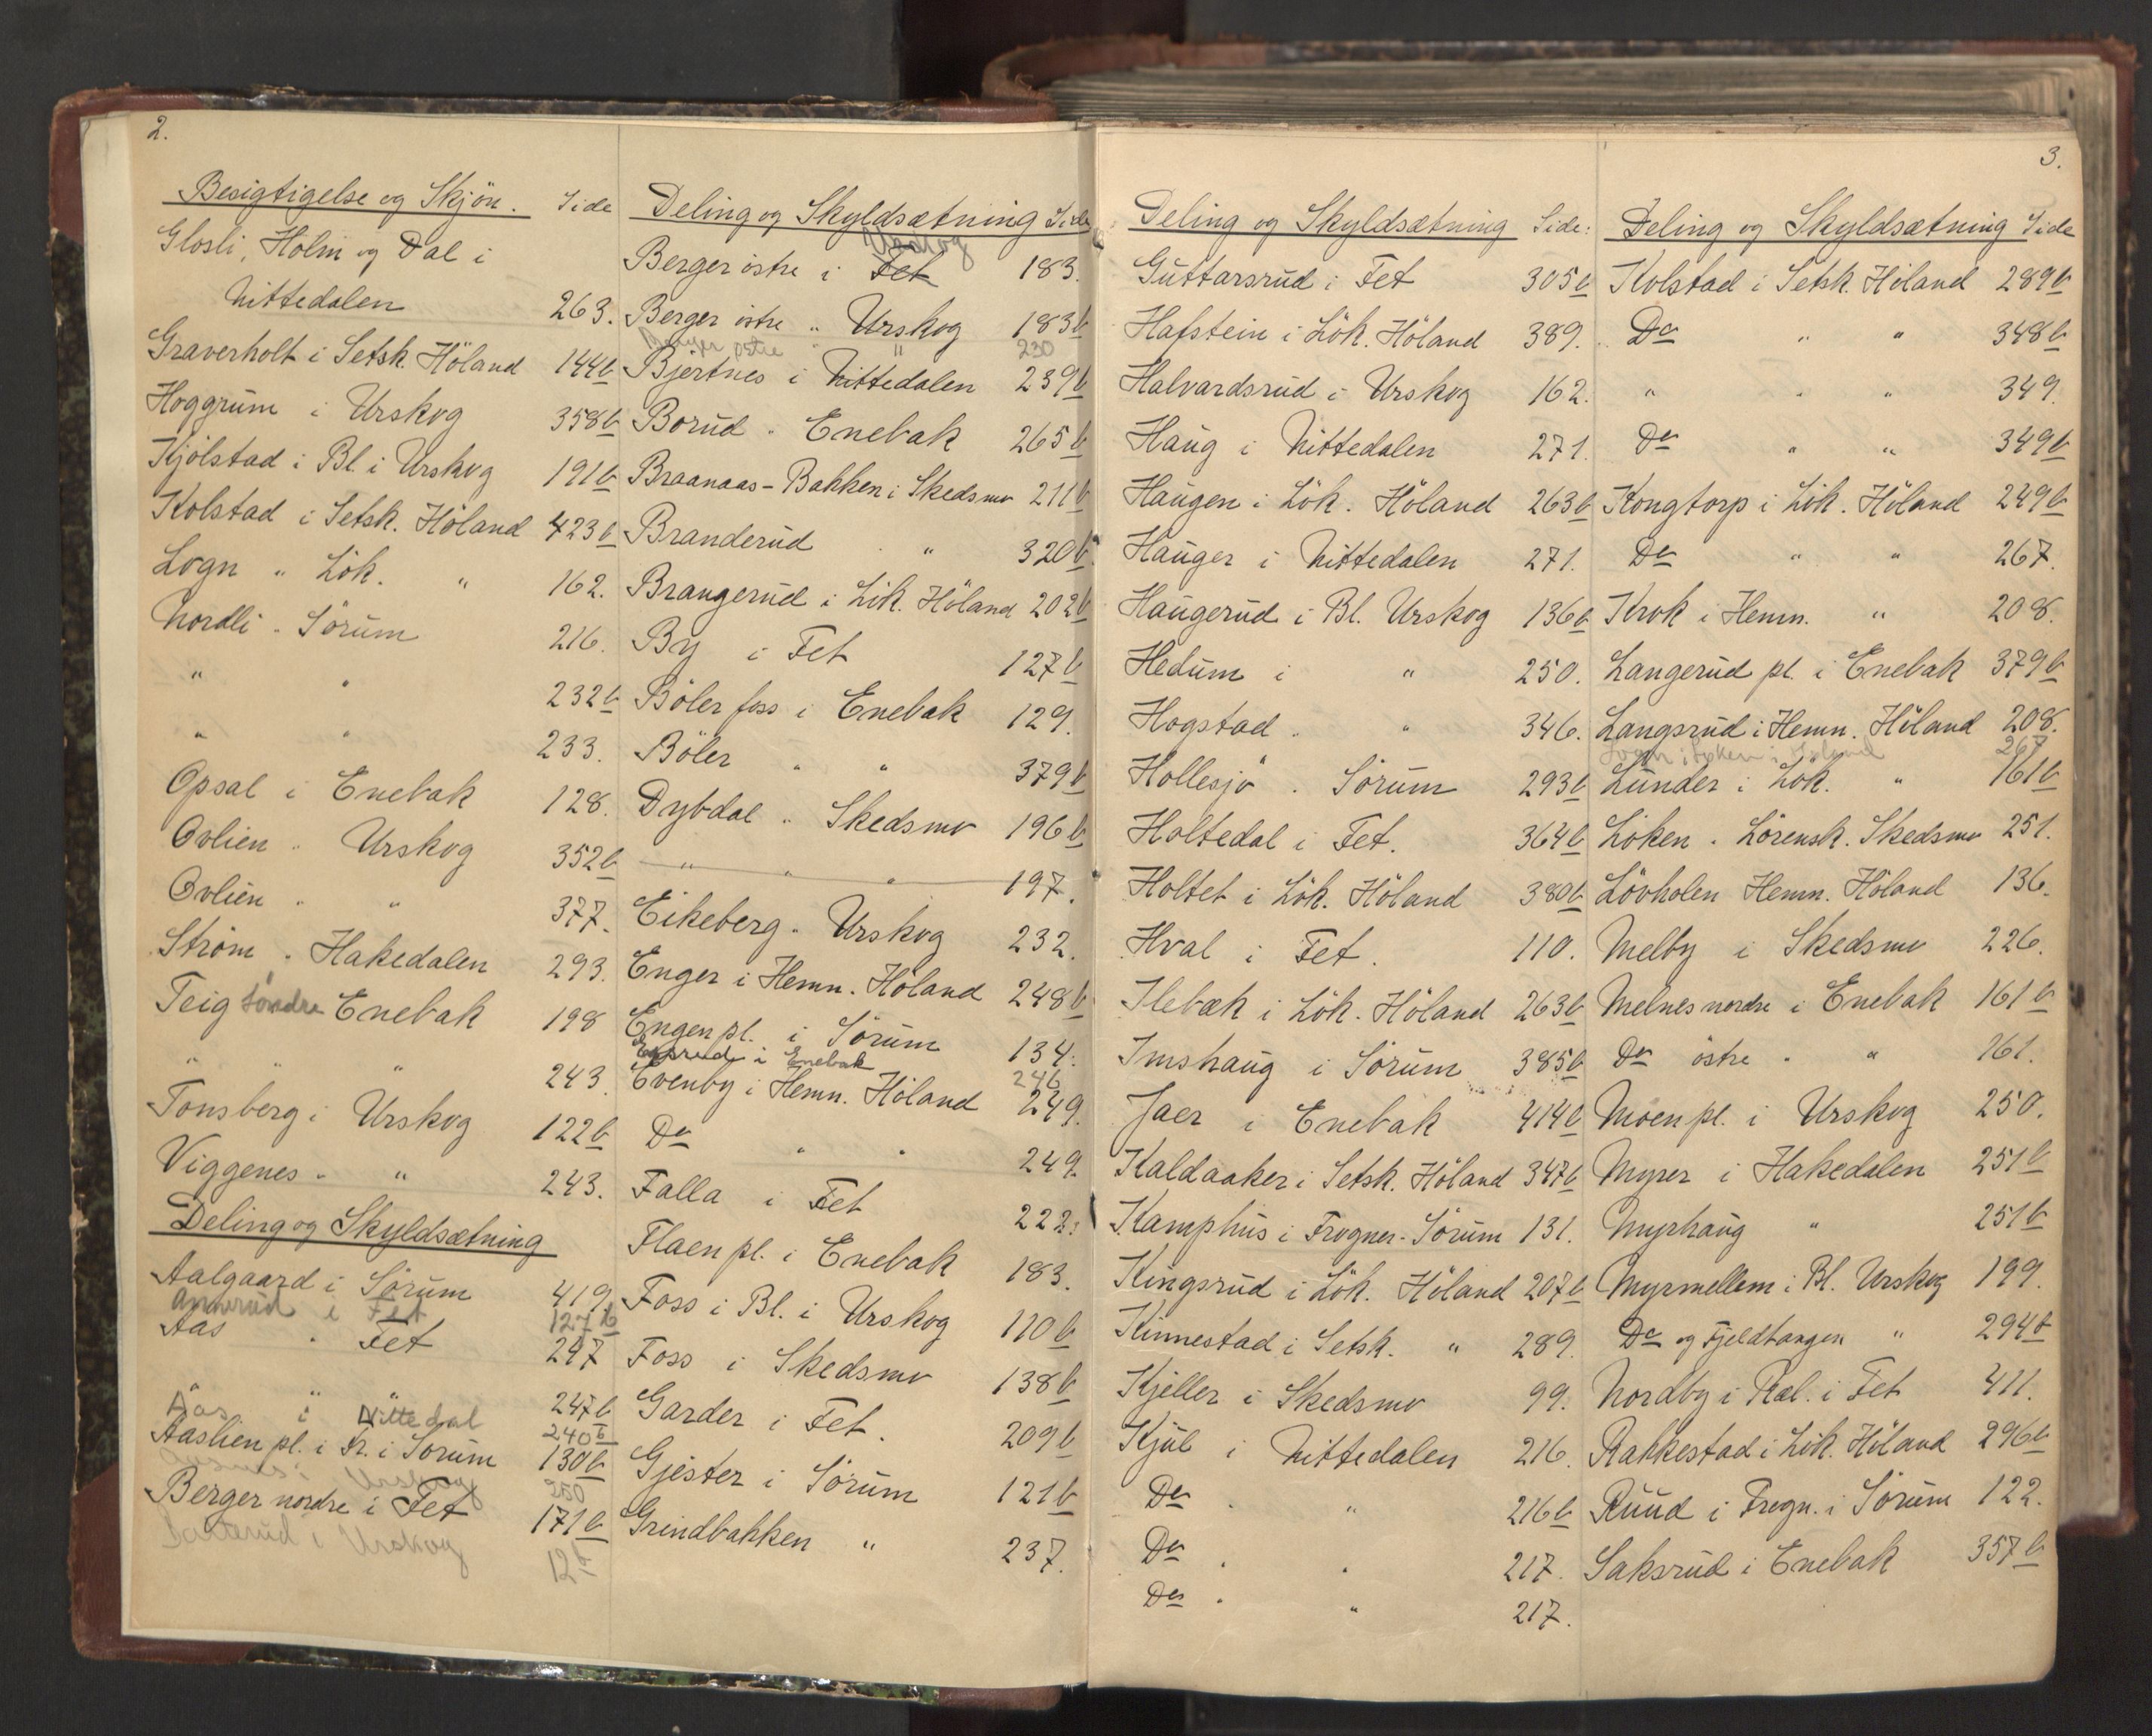 2.
Besigtigelse og Skjön. Side
Glosli, Holm og Dal i
Nittedalen 263.
Graverholt i Setsk. Höland 144b
Hoggrum i Urskog 358b
Kjölstad i Bl. i Urskog 191b
Kolstad i Setsk. Höland 423b
Logn " Lök. " 162.
Nordli " Sörum 216.
" " 232b
" " 233.
Opsal i Enebak 128.
Ovlien " Urskog 352b
Ovlien " " 377.
Ström " Hakedalen 293.
Teig söndre Enebak 198
" " " 243.
Tonsberg i Urskog 122b
Viggenes " " 243.
Deling og Skyldsætning
Aalgaard i Sörum 419.
i Fet 127b
Aas " Fet 297
Aas i Nittedal 247b
240b
Aaslien pl. i Fr. i Sorum 130b
i Urskog 250
Berger nordre i Fet 171b
i Urskog 12b
Deling og Skyldsætning Side
Urskog
Berger östre i Fet 183.
Berger östre " Urskog 183b
Berger östre " " 230
Bjertnes i Nittedalen 239b
Borud " Enebak 265b
Braanaas-Bakken i Skedsmo 211b
Branderud " " 320b
Brangerud i Lök. Höland 202b
By i Fet 127b
Böler foss i Enebak 129.
Böler " " 379b
Dybdal " Skedsmo 196b
" " " 197.
Eikeberg " Urskog 232.
Enger i Hemn. Höland 248b
Engen pl. i Sörum 134.
i Enebak 246
Evenby i Hemn. Höland 249.
Do " " 249.
Falla i Fet 222.
Flaen pl. i Enebak 183.
Foss i Bl. i Urskog 110b
Foss i Skedsmo 138b
Garder i Fet. 209b
Gjester i Sörum 121b
Grindbakken " 237.
3.
Deling og Skyldsætning Side:
Guttarsrud i Fet 305b
Hafstein i Lök. Höland 389.
Halvardsrud i Urskog 162.
Haug i Nittedalen 271.
Haugen i Lök. Höland 263b
Hauger i Nittedalen 271.
Haugerud i Bl. Urskog 136b
Hedum i " 250.
Hogstad " " 346.
Hollesjö " Sörum 293b
Holtedal i Fet. 364b
Holtet i Lök. Höland 380b
Hval i Fet. 110.
Ilebæk i Lök. Höland 263b
Imshaug i Sörum 385b
Jaer i Enebak 414b
Kaldaaker i Setsk. Höland 347b
Kamphus i Frogner-Sörum 131.
Kingsrud i Lök. Höland 207b
Kinnestad i Setsk. " 289.
Kjeller i Skedsmo 99.
Kjul i Nittedalen 216.
Do " " 216b
Do " " 217.
Do " " 217.
Deling og Skyldsætning Side
Kolstad i Setsk. Höland 289b
Do " " 348b
" " " 349.
Do " " 349b
Kongtorp i Lök. Höland 249b
Do " " 267.
Krok i Hemn. " 208.
Langerud pl. i Enebak 379b
Langsrud i Hemn. Höland 208.
Logn i Löken i Höland 267
Lunder i Lök. " 161b
Löken " Lörensk. Skedsmo 251.
Lövholen Hemn. Höland 136.
Melby i Skedsmo 226.
Melnes nordre i Enebak 161b
Do östre " " 161.
Moen pl. i Urskog 250.
Myrer i Hakedalen 251b
Myrhaug " 251b
Myrmellem i Bl. Urskog 199.
Do og Fjeldtangen " 294b
Nordby i Ral. i Fet 411.
Rakkestad i Lök. Höland 296b
Ruud i Frogn. i Sörum 122.
Saksrud i Enebak 357b